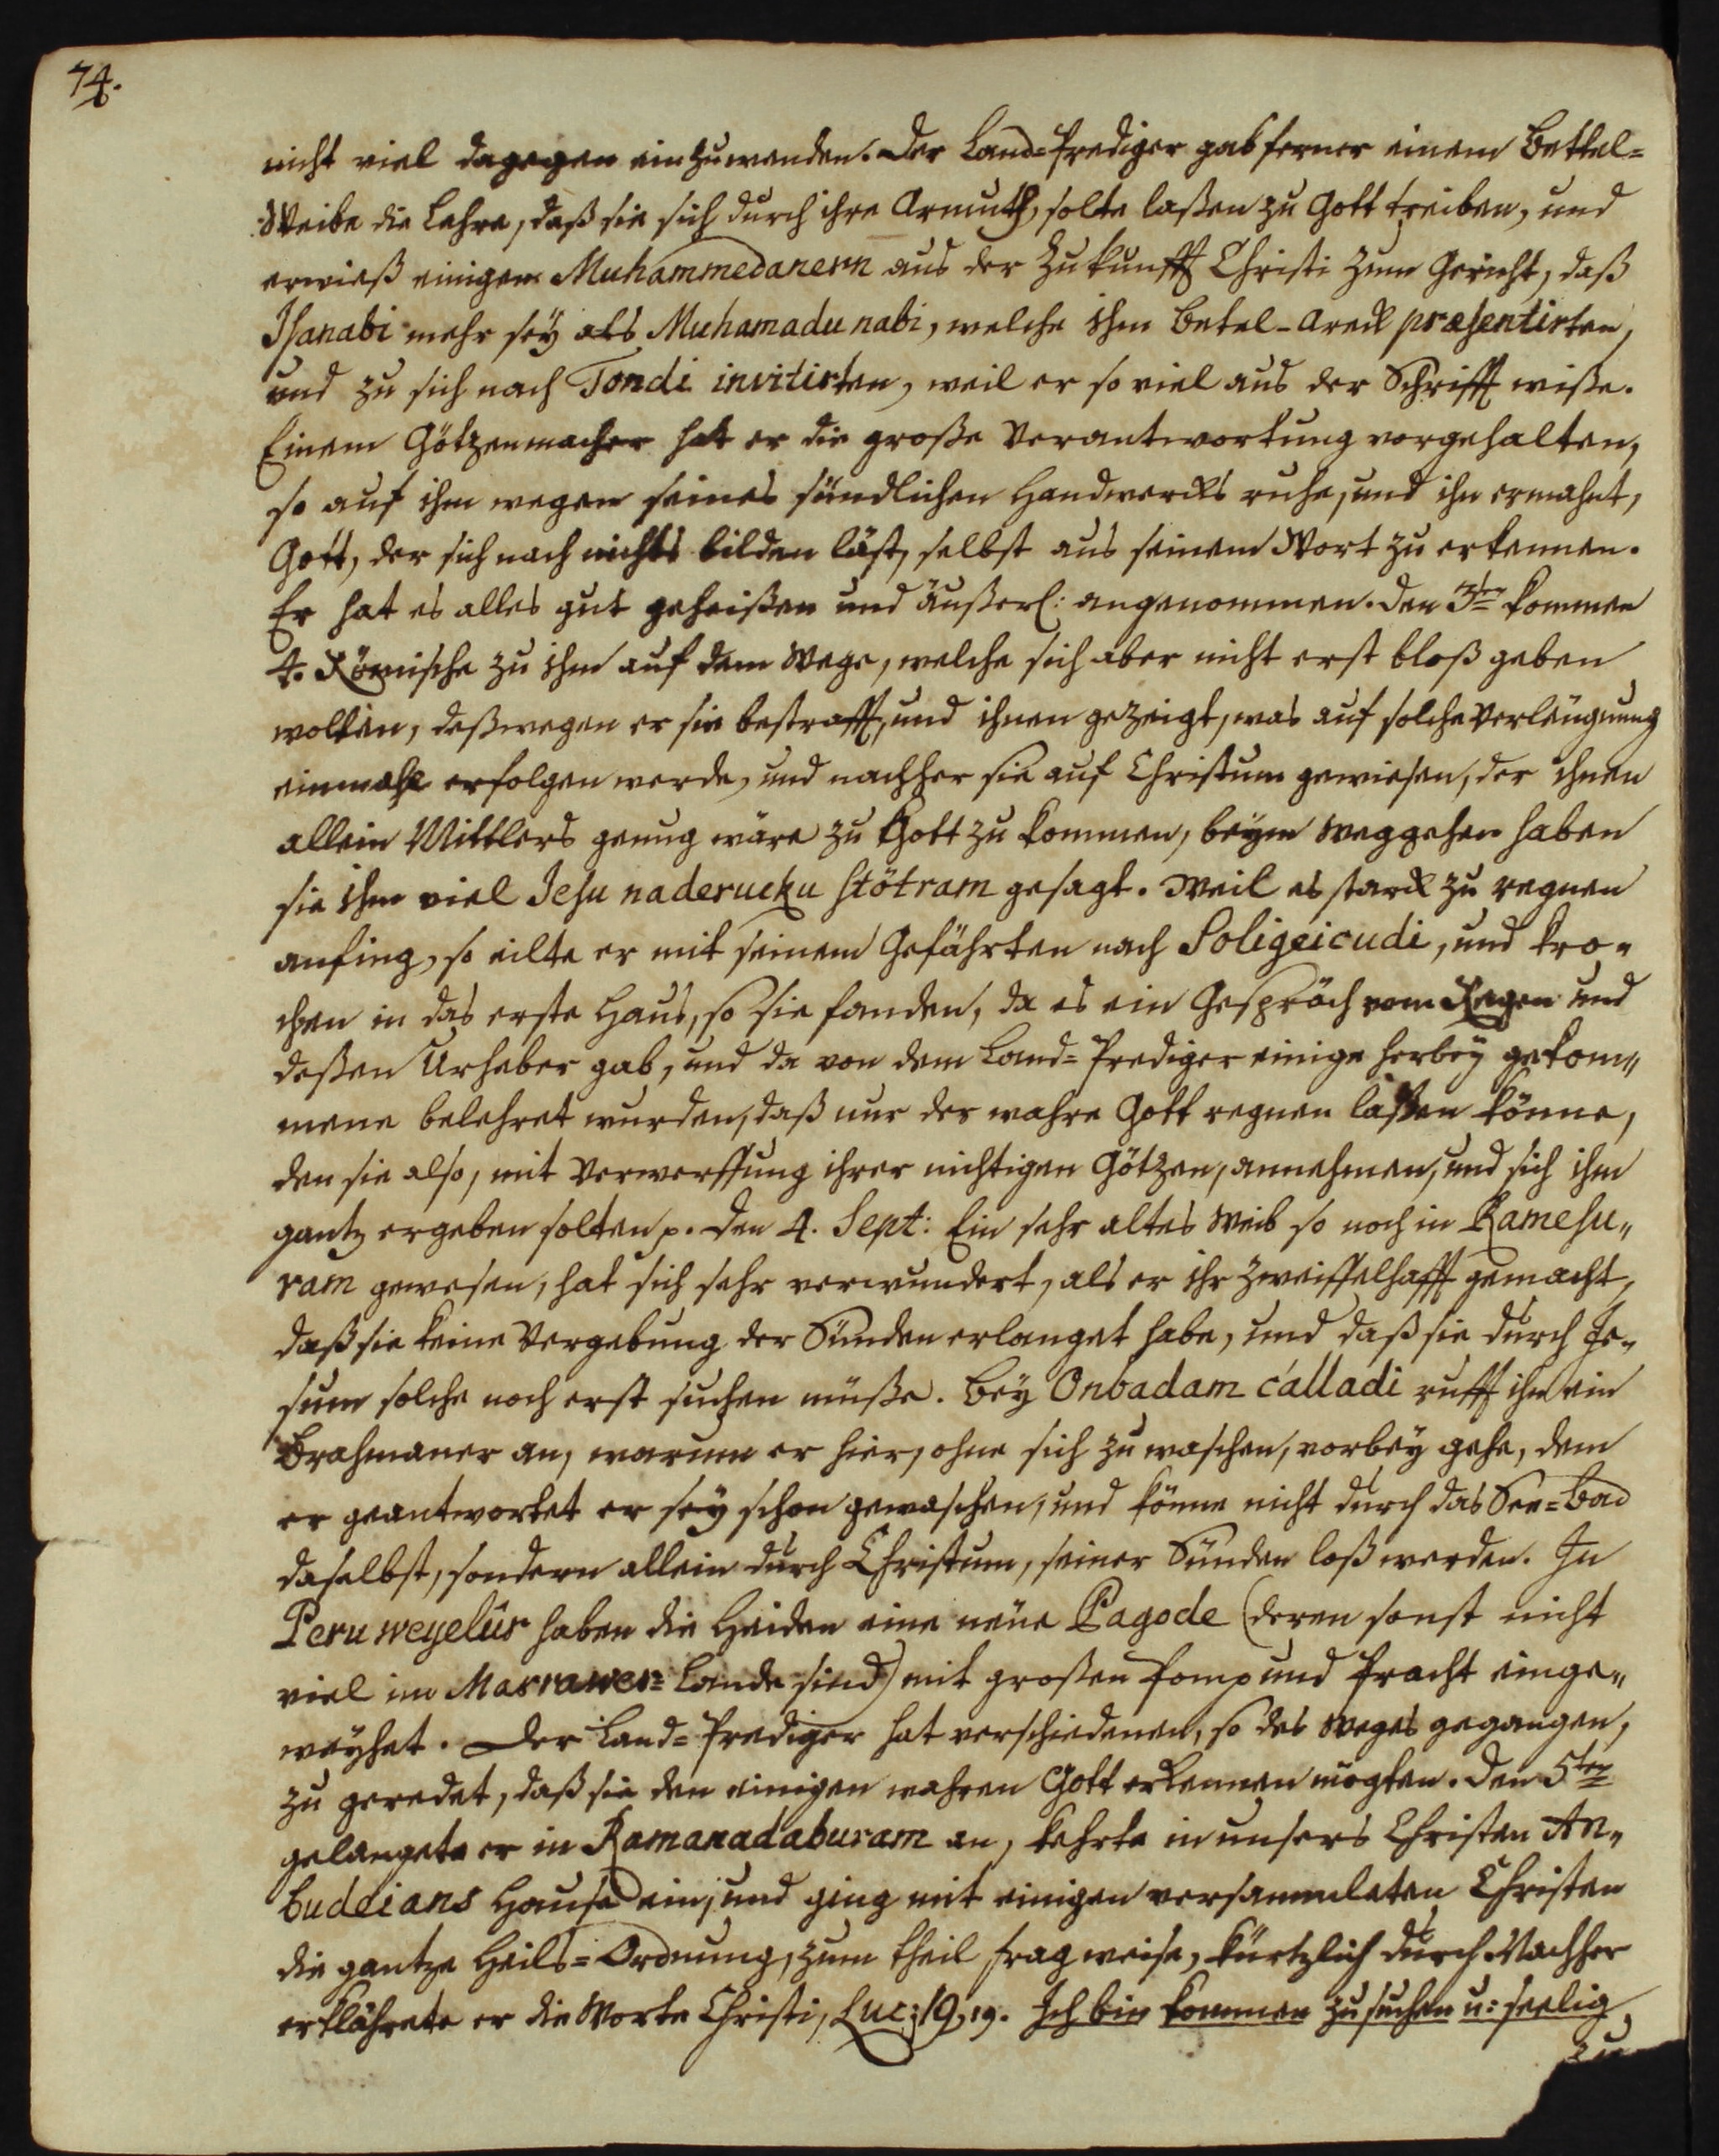 74.
nicht viel dagegen einzuwenden. Der Land-Prediger gab ferner einem Bettel-
Weibe die Lehre, daß sie sich durch ihre Armuth, solte laßen zu Gott treiben, und
erwieß einigen Muhammedanern aus der Zukunfft Christi zum Gericht, daß
Isanabi mehr sey als Muhamadu nabi, welche ihm Betel-Areck præsentirten,
und zu sich nach Tondi invitirten, weil er so viel aus der Schrifft wiße.
Einem Götzenmacher hat er die große Verantwortung vorgehalten,
so auf ihm wegen seines sündlichen Handwercks ruhe, und ihn ermahnt,
Gott, der sich nach nichts bilden läst, selbst aus seinem Wort zu erkennen.
Er hat es alles gut geheißen und äußerl: angenommen. Den 3ten kommen
4. Römische zu ihm auf dem Wege, welche sich aber nicht erst bloß geben
wolten, deßwegen er sie bestrafft, und ihnen gezeigt, was auf solche Verleugnung
einmahl erfolgen werde, und nachher sie auf Christum gewiesen, der ihnen
allein Mittlers genug wäre zu Gott zu kommen, beym Weggehen haben
sie ihm viel Jesu naderucku stötram gesagt. Weil es starck zu regnen
anfing, so eilte er mit seinem Gefährten nach Soligeicudi, und kro-
chen in das erste Haus, so sie fanden, da es ein Gespräch vom Regen und
deßen Urheber gab, und da von dem Land-Prediger einige herbey gekom-
mene belehret wurden, daß nur der wahre Gott regnen laßen könne,
den sie also, mit Verwerffung ihrer nichtigen Götzen, annehmen, und sich ihm
gantz ergeben solten p. Den 4. Sept: Ein sehr altes Weib so noch in Ramesu-
ram gewesen, hat sich sehr verwundert, als er ihr zweiffelhafft gemacht,
daß sie keine Vergebung der Sünden erlanget habe, und daß sie durch Je-
sum solche noch erst suchen müße. Bey Onbadam cálladi rufft ihn ein
Brahmaner an, warum er hier, ohne sich zu waschen, vorbey gehe, dem
er geantwortet er sey schon gewaschen, und könne nicht durch das See-Bad
daselbst, sondern allein durch Christum, seiner Sünden loß werden. In
Peru weyelûr haben die Heiden eine neue Pagode (deren sonst nicht
viel im Marrawer-Lande sind) mit großen Pomp und Pracht einge-
weyhet. Der Land-Prediger hat verschiedenen, so des Weges gegangen,
zu geredet, daß sie den einigen wahren Gott erkennen mögten. Den 5ten
gelangete er in Ramanadaburam an, kehrte in unsers Christen An-
buddeians Hause ein, und ging mit einigen versammleten Christen
die gantze Heils-Ordnung, zum theil frag weise, kürtzlich durch. Nachher
erklährete er die Worte Christi, Luc: 19, 19. Ich bin kommen zu suchen u: seelig
zu